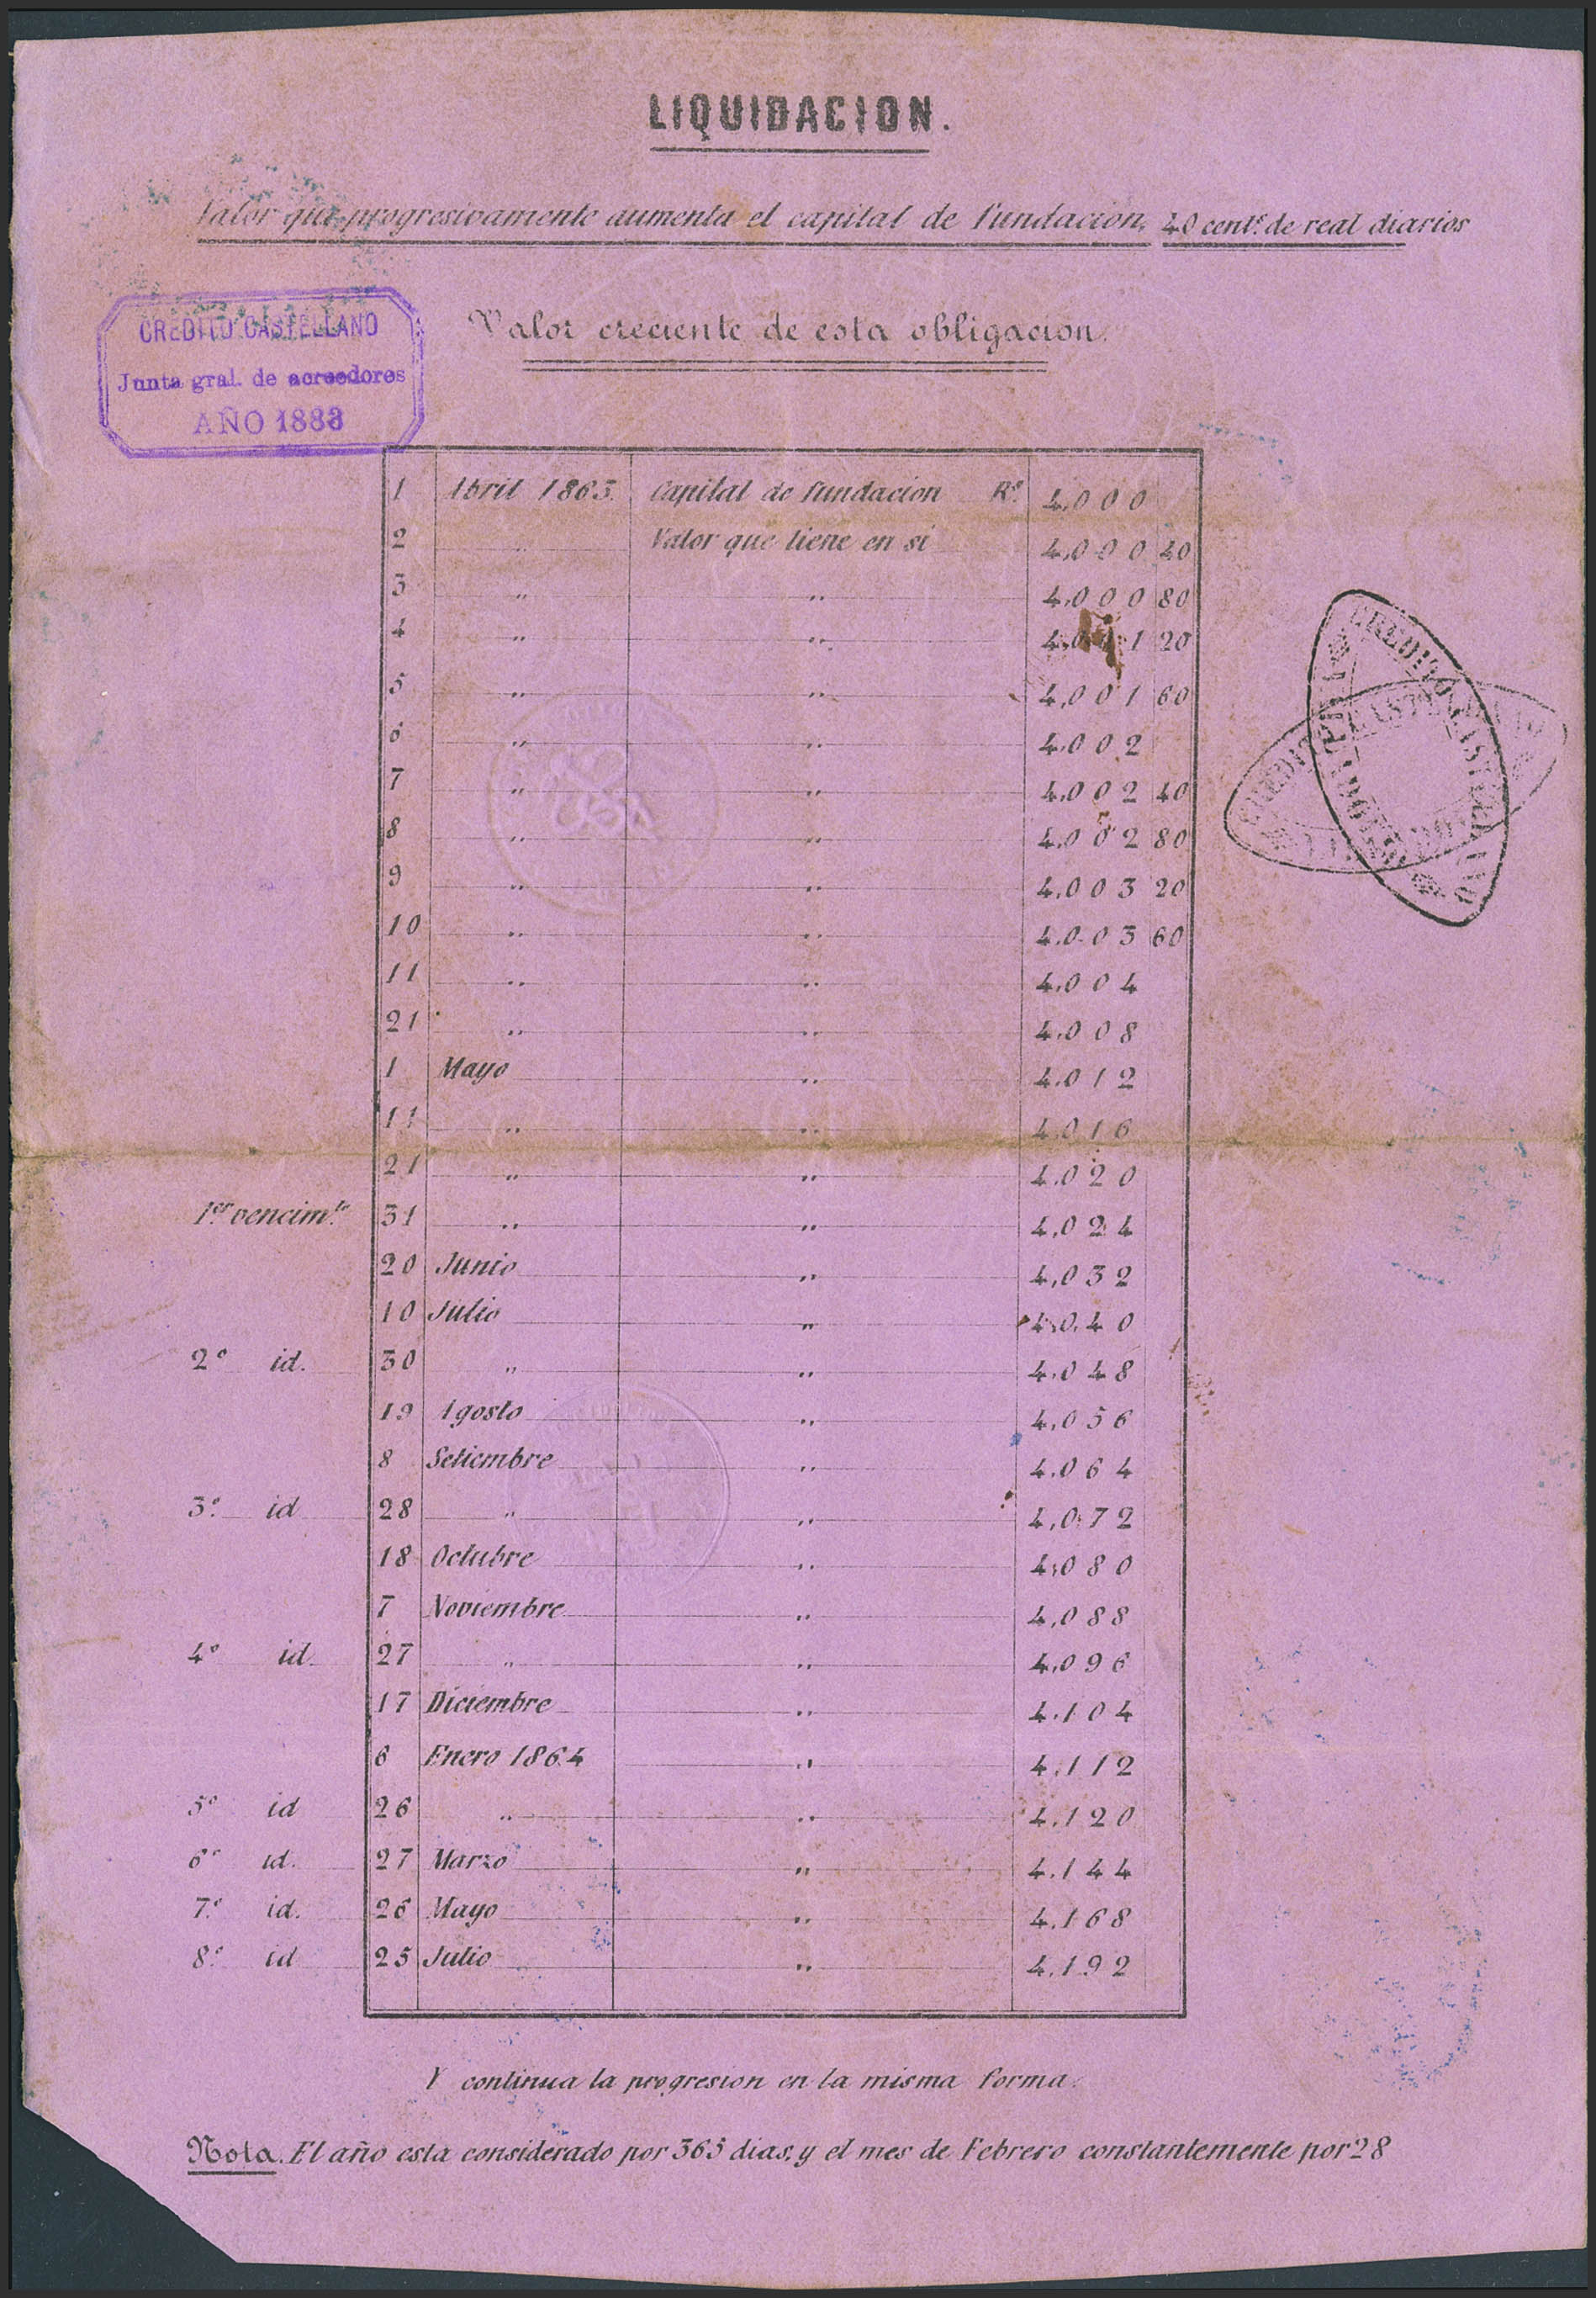 LIQUIDACION.
Valor que progresivamente aumenta el capital de fundacion, 40 cents. de real diarios
CREDITO CASTELLANO
Junta gral. de acreedores
AÑO 1883
Valor creciente de esta obligacion.
1 Abril 1863. Capital de fundacion Rs. 4,000
2 " Valor que tiene en si 4,000 40
3 " " 4,000 80
4 " " 4,001 20
5 " " 4,001 60
6 " " 4,002
7 " " 4,002 40
8 " " 4,002 80
9 " " 4,003 20
10 " " 4,003 60
11 " " 4,004
21 " " 4,008
1 Mayo " 4,012
11 " " 4,016
21 " " 4,020
1er. vencimto. 31 " " 4,024
20 Junio " 4,032
10 Julio " 4,040
2º id. 30 " " 4,048
19 Agosto " 4,056
8 Setiembre " 4,064
3º id 28 " " 4,072
18 Octubre " 4,080
7 Noviembre " 4,088
4º id. 27 " " 4,096
17 Diciembre " 4,104
6 Enero 1864 " 4,112
5º id 26 " " 4,120
6º id. 27 Marzo " 4,144
7º id. 26 Mayo " 4,168
8º id 25 Julio " 4,192
Y continua la progresion en la misma forma.
Nota. El año esta considerado por 365 dias, y el mes de Febrero constantemente por 28
CREDITO CASTELLANO
CREDITO CASTELLANO